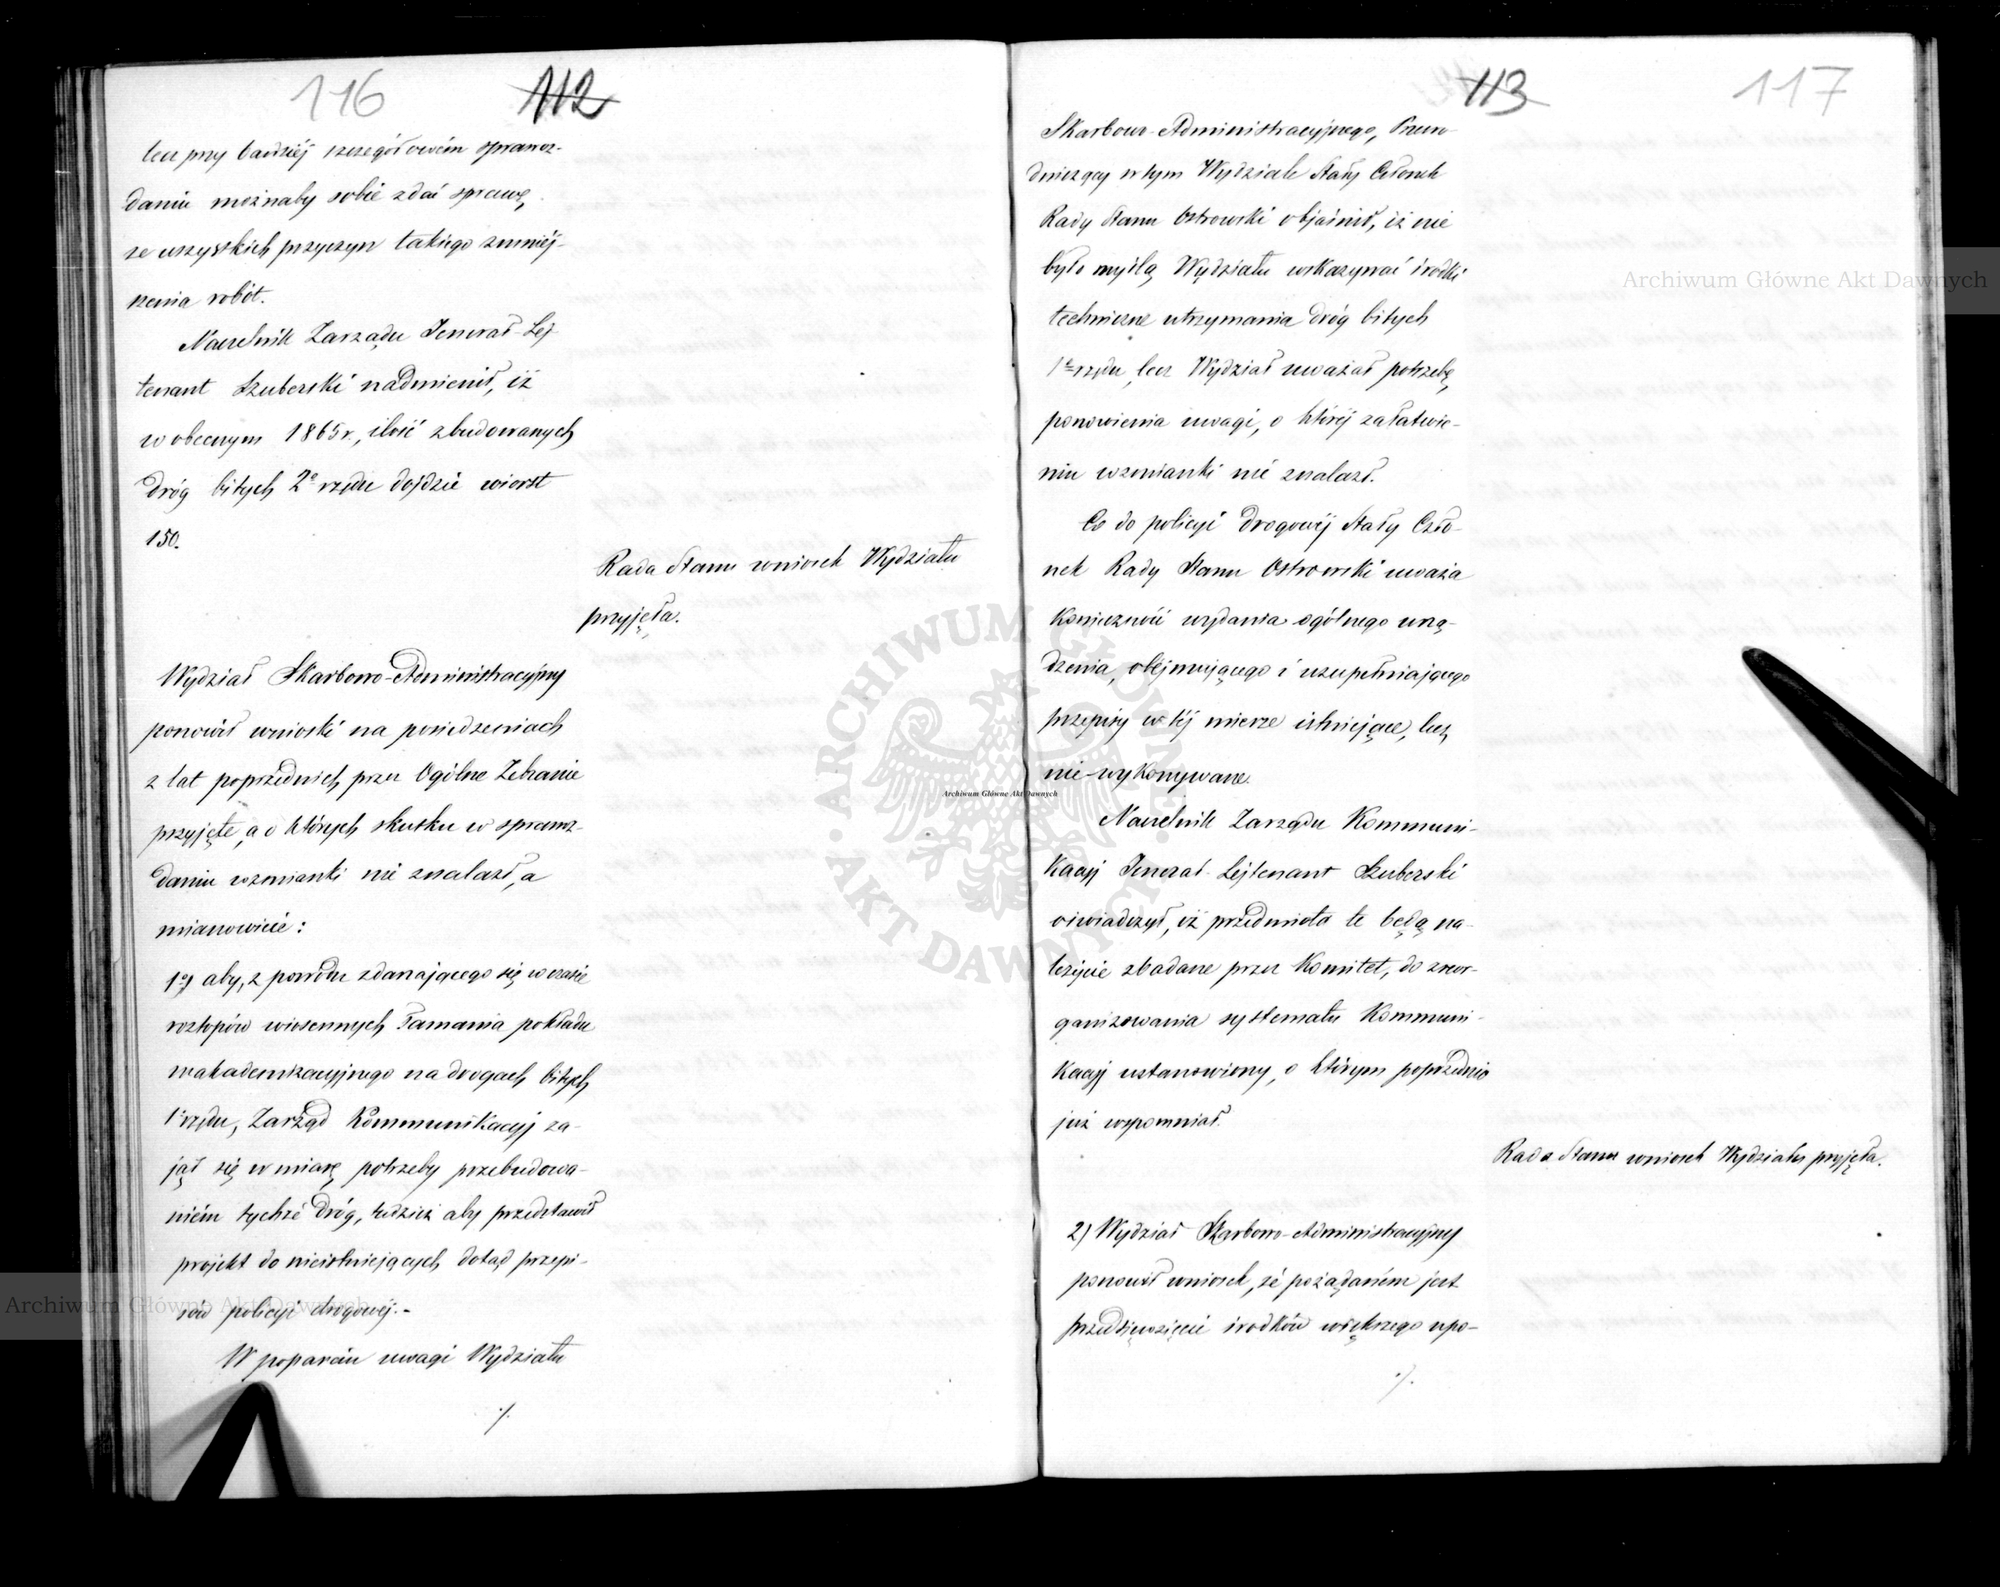 116 112
lecz przy bardziéj szczegółowém sprawoz-
daniu możnaby sobie zdać sprawę,
ze wszystkich przyczyn takiego zmniéj-
szenia robót.
Naczelnik Zarządu Jenerał Lej-
tenant Szuberski nadmienił, iż
w obecnym 1865 r., ilość zbudowanych
dróg bitych 2º rzędu dojdzie wiorst
150.
Rada Stanu wniosek Wydziału
przyjęła.
Wydział Skarbowo-Administracyjny
ponowił wnioski na posiedzeniach
z lat poprzednich przez Ogólne Zebranie
przyjęte, a o których skutku w sprawoz-
daniu wzmianki nie znalazł, a
mianowicie:
1º) aby, z powodu zdarzającego się w czasie
roztopów wiosennych łamania pokładu
makademizacyjnego na drogach bitych
1º rzędu, Zarząd Kommunikacyj za-
jął się w miarę potrzeby przebudowa-
niem tychże dróg, tudzież aby przedstawił
projekt do nieistniejących dotąd przepi-
sów policyi drogowéj.-
W poparciu uwagi Wydziału
./.
113 117
Skarbowo-Administracyjnego, Prezy-
dniczący w tym Wydziale Stały Członek
Rady Stanu Ostrowski objaśnił, iż nie
było myślą Wydziału wskazywać środki
techniczne utrzymania dróg bitych
1º rzędu, lecz Wydział uważał potrzebę
ponowienia uwagi, o któréj załatwie-
niu wzmianki nie znalazł.
Co do policyi drogowéj Stały Czło-
nek Rady Stanu Ostrowski uważa
konieczność wydania ogólnego urzą-
dzenia, obejmującego i uzupełniającego
przepisy w téj mierze istniejące, lecz
nie wykonywane.
Naczelnik Zarządu Kommuni-
kacyj Jenerał-Lejtenant Szuberski
oświadczył, iż przedmiota te będą na-
leżycie zbadane przez Komitet, do zreor-
ganizowania systematu Kommuni-
kacyj ustanowiony, o którym poprzednio
już wspomniał.
Rada Stanu wniosek Wydziału przyjęła.
2) Wydział Skarbowo-Administracyjny
ponowił wniosek, że pożądaném jest
przedsięwzięcie środków większego upo-
./.
Archiwum Główne Akt Dawnych
Archiwum Główne Akt Dawnych
Archiwum Główne Akt Dawnych
ARCHIWUM GŁÓWNE AKT DAWNYCH